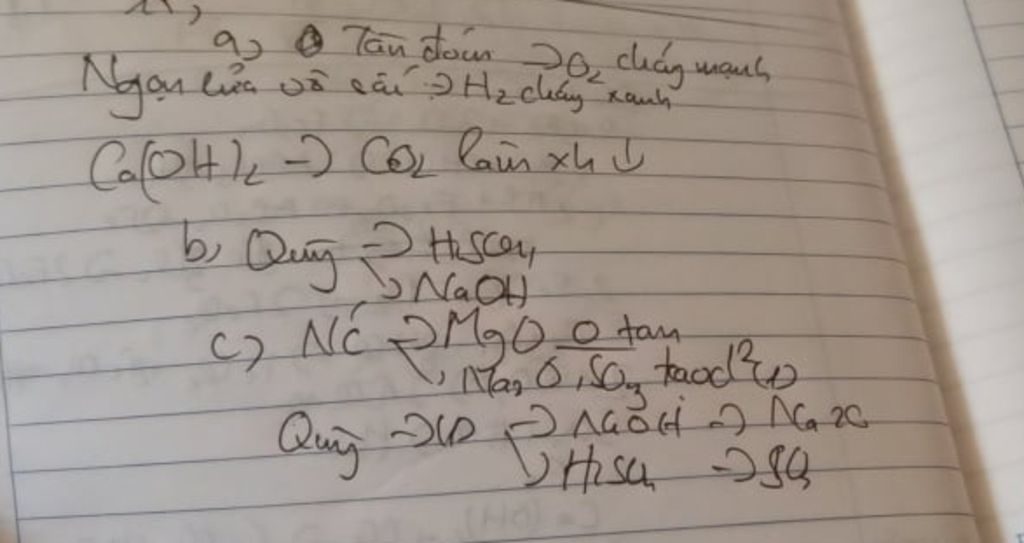 a, Tàn đóm → O2 cháy mạnh
Ngọn lửa → H2 cháy xanh
Ca(OH)2 → CO2 làm xh ↓
b, Quỳ → H2SO4
↘ NaOH
c) NC → MgO 0 tan
↘ Na2O, SO3 tạo d² (1)
Quỳ → (1) → NaOH → Na2O
↘ H2SO4 → SO3